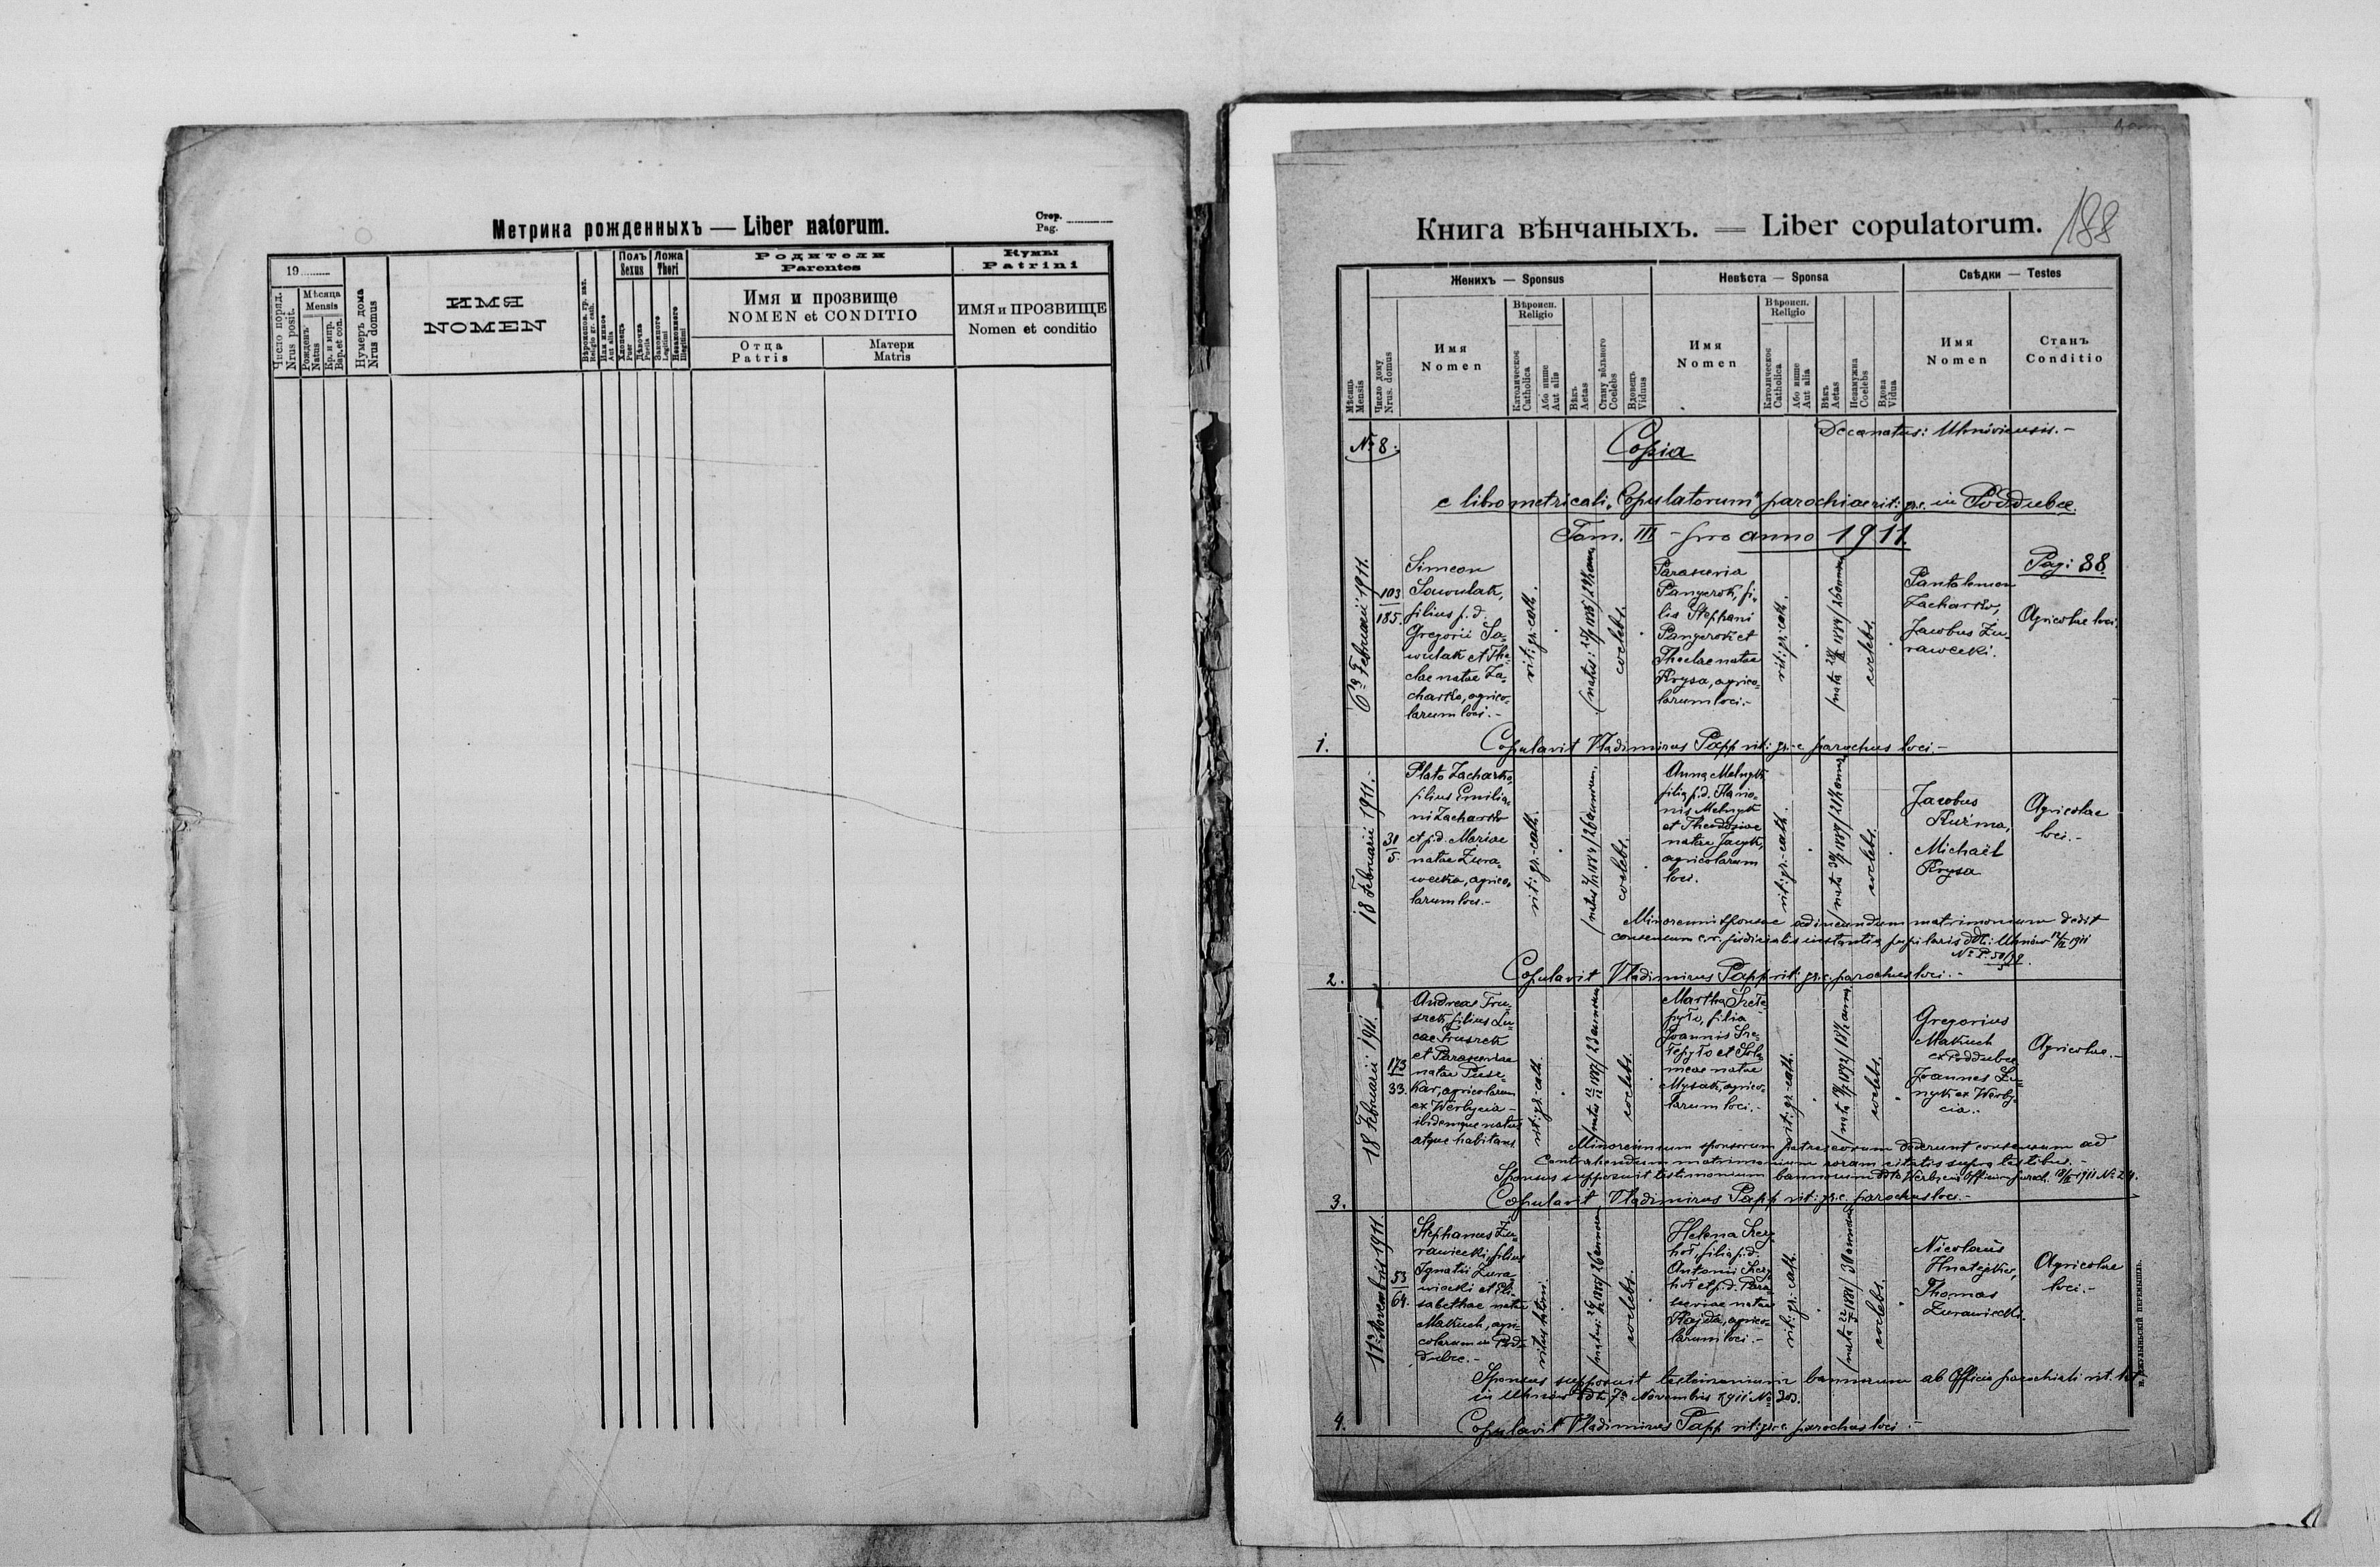 Метрика рожденныхъ — Liber natorum.
Стор.
Pag.
19
Число поряд.
Nrus posit.
Мѣсяца
Mensis
Рожденъ
Natus
Кр. и мѵр.
Bap. et con.
Нумеръ дома
Nrus domus
ИМЯ
NOMEN
Вѣроиспов. гр. кат.
Religio gr. cath.
Или инное
Aut alia
Полъ
Sexus
Хлопецъ
Puer
Дѣвочка
Puella
Ложа
Thori
Законного
Legitimi
Незаконного
Illegitimi
Родители
Parentes
Имя и прозвище
NOMEN et CONDITIO
Отца
Patris
Матери
Matris
Кумы
Patrini
ИМЯ и ПРОЗВИЩЕ
Nomen et conditio
188
Книга вѣнчаныхъ. — Liber copulatorum.
Мѣсяць
Mensis
Число дому
Nrus. domus
Женихъ — Sponsus
Имя
Nomen
Вѣроисп.
Religio
Католическое
Catholica
Або инше
Aut alia
Вѣкъ
Aetas
Стану вôльного
Coelebs
Вдовець
Viduus
Невѣста — Sponsa
Имя
Nomen
Вѣроисп.
Religio
Католическое
Catholica
Або инше
Aut alia
Вѣкъ
Aetas
Незамужна
Coelebs
Вдова
Vidua
Свѣдки — Testes
Имя
Nomen
Станъ
Conditio
№ 8.
Copia
Decanatus: Uhnoviensis.-
e libro metricali "Copulatorum" parochiae rit: gr.c. in Poddubce.
Tom. III - pro anno 1911.
Pag: 88.
6 Februarii 1911.
103
185.
Simeon
Sawulak,
filius p.d.
Gregorii Sa-
wulak et The-
clae natae Za-
charko, agrico-
larum loci.-
rit: gr: cath.
coelebs.
Parascevia
filia Stephani
et
Theclae natae
Krysa, agrico-
larum loci.-
rit: gr: cath.
coelebs.
Pantalemon
Zacharko,
Jacobus Żu-
rawecki.
Agricolae loci.
1.
Copulavit Vladimirus Papp rit: gr.c. parochus loci.-
18 Februarii 1911.-
31
5.
Plato Zacharko,
filius Emilia-
ni Zacharko
et p.d. Mariae
natae Żura-
wecka, agrico-
larum loci.-
rit: gr.-cath.
coelebs.
Anna Melnyk
filia p.d. Ilario-
nis Melnyk
et Theodosiae
natae Jacyk,
agricolarum
loci.
rit: gr.-cath.
coelebs.
Jacobus
Kuźma,
Michaël
Krysa
Agricolae
loci.-
Minorenni sponsae ad ineundum matrimonium dedit
consensum c.r. judicialis instantia pupilaris ddto: Uhnów
2.
Copulavit Vladimirus Papp rit: gr.c. parochus loci.-
18 Februarii 1911.
173
33.
Andreas Fru-
szek, filius Lu-
cae Fruszek
et Parasceviae
natae
agricolarum
ex Werbycia -
ibidemque natus
atque habitans
rit: gr.-cath.
coelebs
Martha Szele-
pyło, filia
Joannis Sze-
lepyło et Salo-
meae natae
Mysak, agrico-
larum loci.-
rit: gr.-cath.
coelebs.
Gregorius
Makuch
ex Poddubce
Joannes
ex Werby-
cia.-
Agricolae.-
Minorennium sponsorum patres eorum dederunt consensum ad
contrahendum matrimonium coram citatis supra testibus.-
Sponsus supposuit testimonium bannorum ddto Werbycia Officium paroch.
3.
Copulavit Vladimirus Papp rit: gr.c. parochus loci.-
Novembris 1911.
53
64.
Stephanus Żu-
rawiecki, filius
Ignatii Żura-
wiecki et Eli-
sabethae natae
Makuch, agri-
colarum in Pod-
dubce.-
ritus latini.
coelebs.
Helena
filia p.d.
Antonii
et p.d. Para-
sceviae natae
Hajda, agrico-
larum loci.-
rit: gr.-cath.
coelebs.
Nicolaus
Hnatejko,
Thomas
Żurawiecki.
Agricolae
loci.-
Sponsus supposuit testimonium bannorum ab Officio parochiali rit. lat
in Uhnów ddto Novembris 1911 №
4.
Copulavit Vladimirus Papp rit: gr.c. parochus loci.-